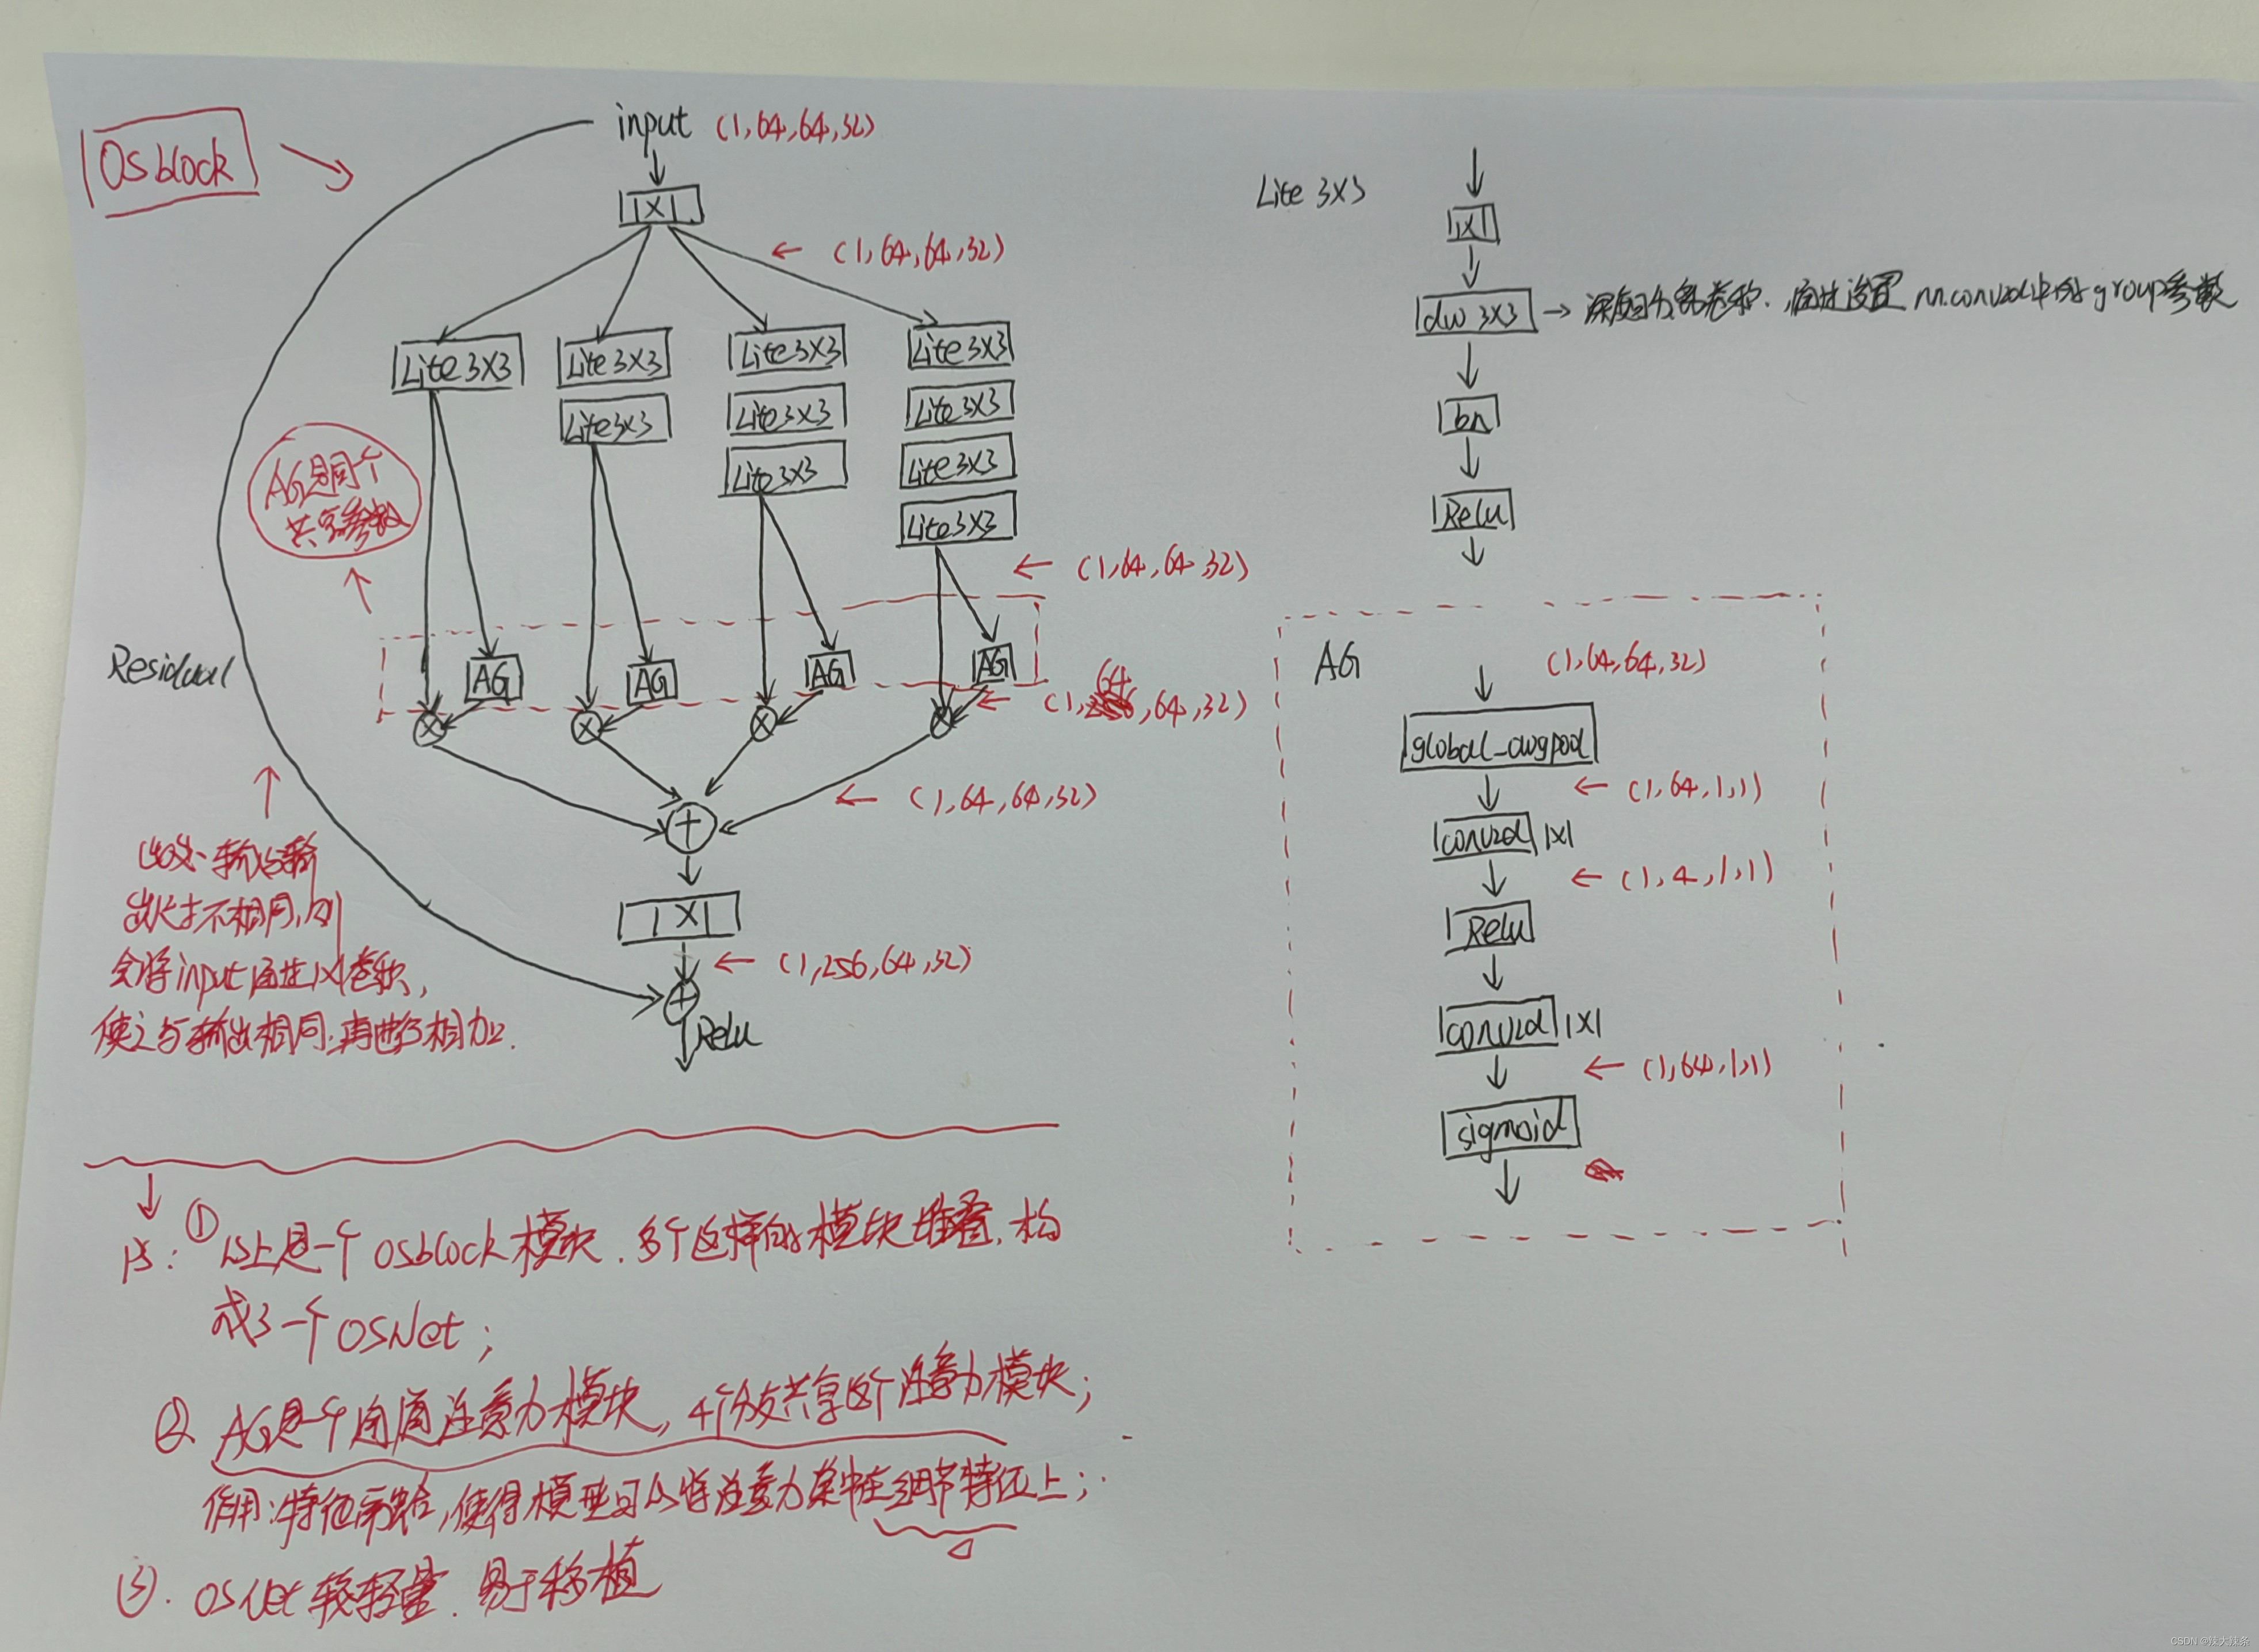 OSblock
input (1,64,64,32)
1X1
← (1,64,64,32)
Lite3X3
Lite3X3
Lite3X3
Lite3X3
Lite3X3
Lite3X3
Lite3X3
Lite3X3
Lite3X3
Lite3X3
AG是同个
共享参数
← (1,64,64,32)
Residual
AG
AG
AG
AG
64
← (1, ,64,32)
← (1,64,64,32)
+
1X1
← (1,256,64,32)
+
Relu
输入与输
出尺寸不相同,则
会将input通过1X1卷积,
使之与输出相同.再进行相加.
PS: ① 以上是一个OSblock模块.多个这样的模块堆叠.构
成了一个OSNet;
②. AG是一个通道注意力模块,4个分支共享这个注意力模块;
作用:特征融合,使得模型可以将注意力集中在细节特征上;
③. OSNet较轻量.易于移植
Lite 3X3
1X1
dw 3X3 → 深度可分离卷积.通过设置nn.conv2d中的group参数
bn
Relu
AG
(1,64,64,32)
global_avgpool
← (1,64,1,1)
conv2d 1X1
← (1,4,1,1)
Relu
conv2d 1X1
← (1,64,1,1)
sigmoid
CSDN @辣大辣条